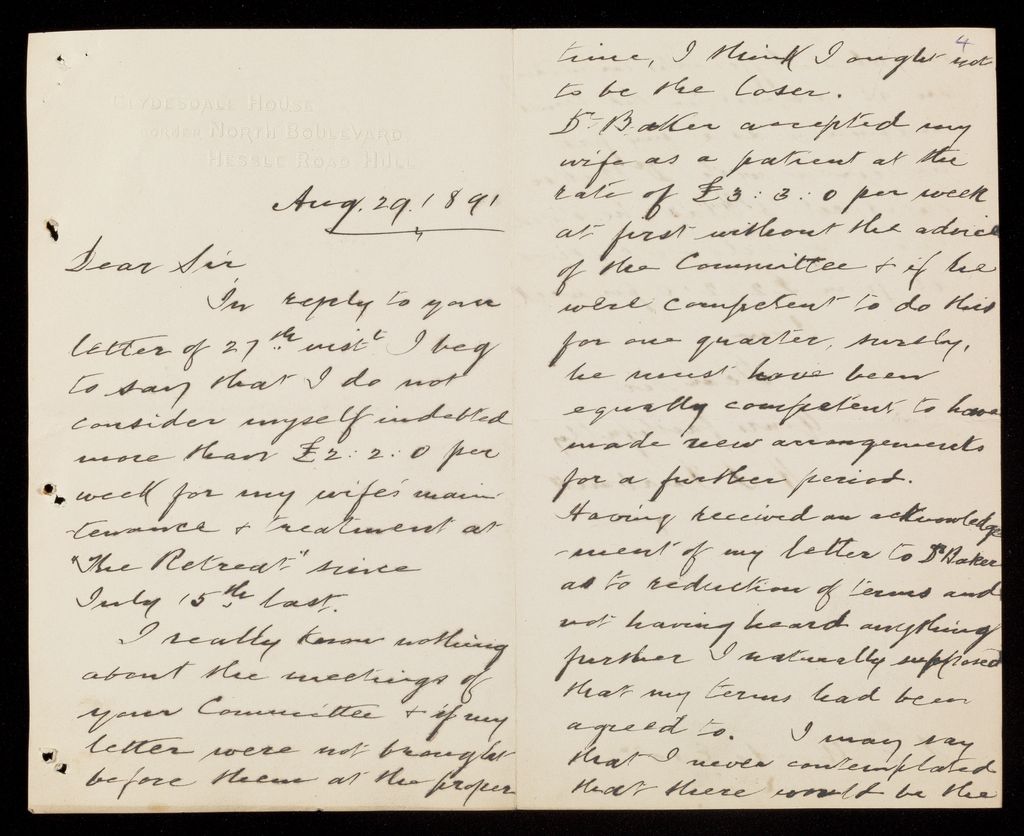 CLYDESDALE HOUSE
CORNER NORTH BOULEVARD
HESSLE ROAD HULL
Aug. 29. 1891
Dear Sir
In reply to your
letter of 27th inst I beg
to say that I do not
consider myself indebted
more than £2:2:0 per
week for my wife's main-
tenance & treatment at
"The Retreat" since
July 15th last.
I really know nothing
about the meetings of
your Committee & if my
letter were not brought
before them at the proper
4
time, I think I ought not
to be the loser.
Dr Baker accepted my
wife as a patient at the
rate of £3:3:0 per week
at first without the advice
of the Committee & if he
were competent to do this
for one quarter, surely,
he must have been
equally competent to have
made new arrangements
for a further period.
Having received an acknowledge
-ment of my letter to Dr Baker
as to reduction of terms and
not having heard anything
further I naturally supposed
that my terms had been
agreed to. I may say
that I never contemplated
that there would be the